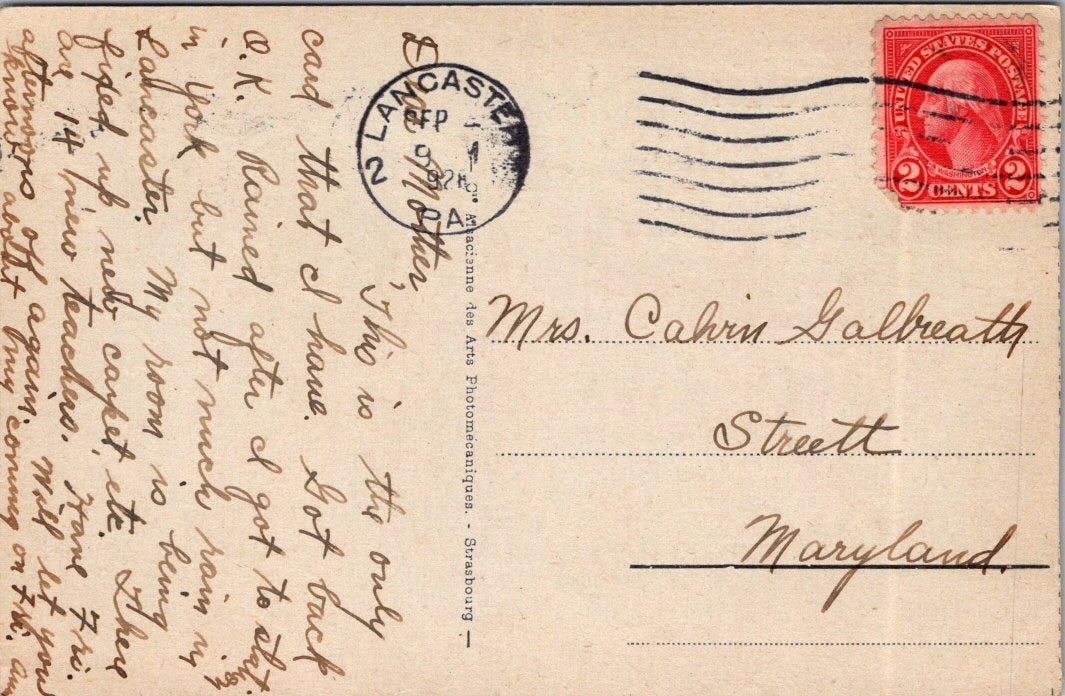 Dear Mother
This is the only
card that I have. Got back
O.K. Rained after I got to sta.
in York but not much rain in
Lancaster. My room is being
fixed up new carpet, etc. There
are 14 new teachers. Have Fri.
afternoons off again. Will let you
know about my coming on Fri.
LANCASTER
SEP
9
1928
PA.
2
Alsacienne des Arts Photomécaniques. - Strasbourg —
UNITED STATES POSTAGE
WASHINGTON
2 CENTS 2
Mrs. Calvin Galbreath
Streett
Maryland.